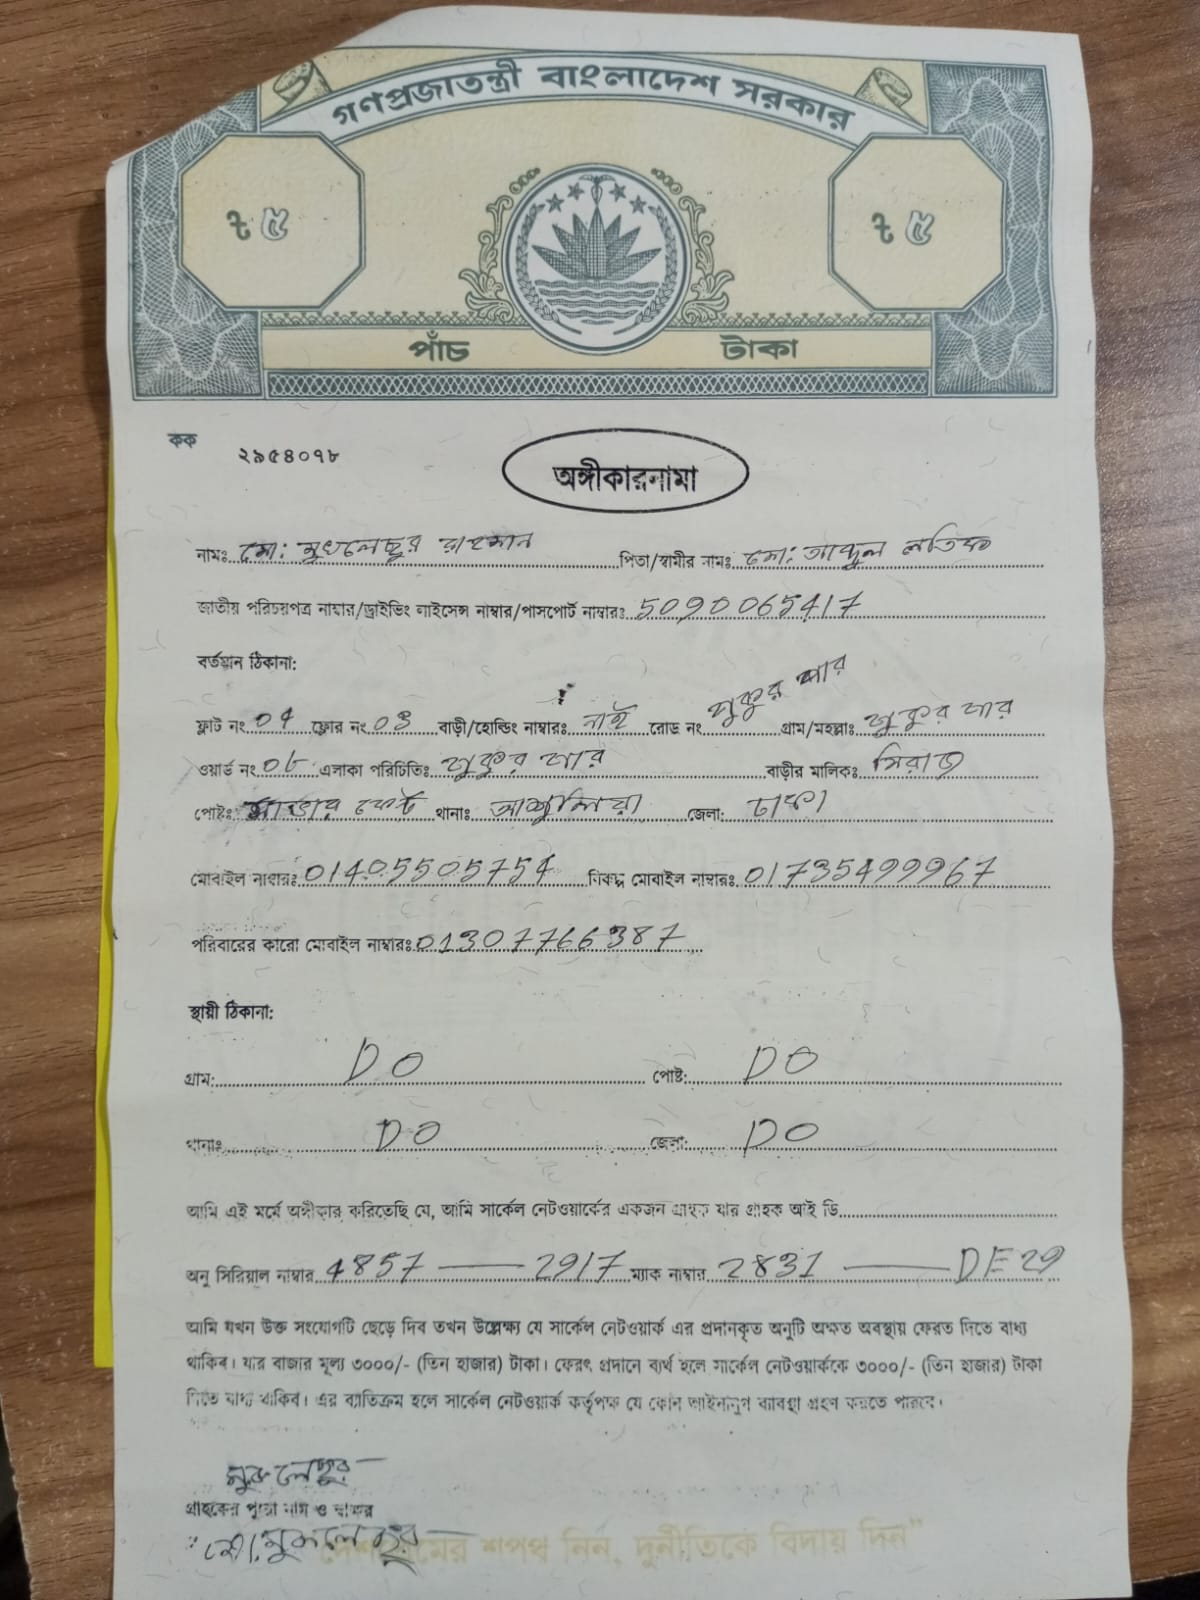 গণপ্রজাতন্ত্রী বাংলাদেশ সরকার
৳ ৫ ৳ ৫
পাঁচ টাকা
কক
২৯৫৪০৭৮
অঙ্গীকারনামা
নামঃ মো: মুখলেছুর রাহমান পিতা/স্বামীর নামঃ মো: আব্দুল লতিফ
জাতীয় পরিচয়পত্র নাম্বার/ড্রাইভিং লাইসেন্স নাম্বার/পাসপোর্ট নাম্বারঃ 5090065417
বর্তমান ঠিকানা:
ফ্লাট নং 04 ফ্লোর নং 03 বাড়ী/হোল্ডিং নাম্বারঃ নাই রোড নং পুকুর পার গ্রাম/মহল্লাঃ পুকুর পার
ওয়ার্ড নং 08 এলাকা পরিচিতিঃ পুকুর পার বাড়ীর মালিকঃ সিরাজ
পোষ্টঃ থানাঃ আশুলিয়া জেলা: ঢাকা
মোবাইল নাম্বারঃ 01405505754 বিকল্প মোবাইল নাম্বারঃ 01735499967
পরিবারের কারো মোবাইল নাম্বারঃ 01307766387
স্থায়ী ঠিকানা:
গ্রাম: DO পোষ্ট: DO
থানাঃ DO জেলা: DO
আমি এই মর্মে অঙ্গীকার করিতেছি যে, আমি সার্কেল নেটওয়ার্কের একজন গ্রাহক যার গ্রাহক আই ডি
অনু সিরিয়াল নাম্বার 4857 — 2917 ম্যাক নাম্বার 2831 — DE29
আমি যখন উক্ত সংযোগটি ছেড়ে দিব তখন উল্লেক্ষ্য যে সার্কেল নেটওয়ার্ক এর প্রদানকৃত অনুটি অক্ষত অবস্থায় ফেরত দিতে বাধ্য
থাকিব। যার বাজার মূল্য ৩০০০/- (তিন হাজার) টাকা। ফেরৎ প্রদানে ব্যর্থ হলে সার্কেল নেটওয়ার্ককে ৩০০০/- (তিন হাজার) টাকা
দিতে বাধ্য থাকিব। এর ব্যাতিক্রম হলে সার্কেল নেটওয়ার্ক কর্তৃপক্ষ যে কোন আইনানুগ ব্যাবস্থা গ্রহণ করতে পারবে।
মুকলেছুর
গ্রাহকের পুরো নাম ও স্বাক্ষর
মো: মুকলেছুর
দেশপ্রেমের শপথ নিন, দুর্নীতিকে বিদায় দিন"